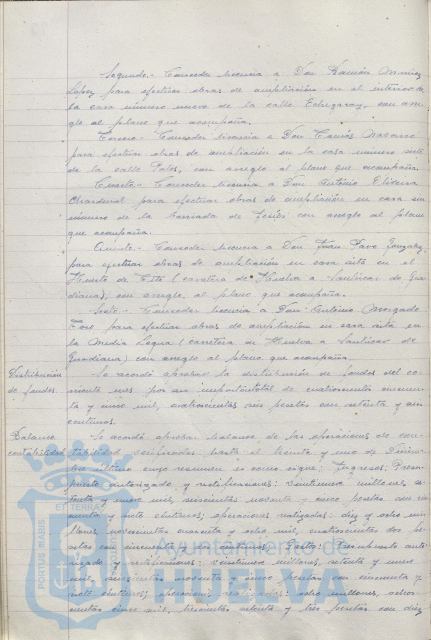 Segundo.- Conceder licencia a Don Ramón Muñiz
López para efectuar obras de ampliación en el interior de
la casa número nueve de la calle Echegaray, con arre
glo al plano que acompaña.
Tercero.- Conceder licencia a Don Tomás Navarro
para efectuar obras de ampliación en la casa número siete
de la calle Palos, con arreglo al plano que acompaña.
Cuarto.- Conceder licencia a Don Antonio Oliveira
para efectuar obras de ampliación en casa sin
número de la barriada de con arreglo al plano
que acompaña.
Quinto.- Conceder licencia a Don Juan Pavo González
para efectuar obras de ampliación en casa sita en el
Huerto de (carretera de Huelva a Sanlúcar de Gua
diana), con arreglo al plano que acompaña.
Sexto.- Conceder licencia a Don Antonio Morgado
Toro para efectuar obras de ampliación en casa sita en
la Media Legua (carretera de Huelva a Sanlúcar de
Guadiana) con arreglo al plano que acompaña.
Distribución Se acordó aprobar la distribución de fondos del co
de fondos. rriente mes por un importe total de cuatrocientas cincuen
ta y una mil, cuatrocientas seis pesetas con setenta y un
céntimos.
Balance Se acordó aprobar balance de las operaciones de con
contabilidad tabilidad verificadas hasta el treinta y uno de Diciem
bre último cuyo resumen es como sigue: Ingresos: Presu
puesto autorizado y rectificaciones: veintinueve millones, se
tenta y nueve mil, seiscientas noventa y cinco pesetas con cin
cuenta y ocho céntimos; operaciones realizadas: diez y ocho mi
llones, novecientas cuarenta y ocho mil, cuatrocientas dos pe
setas con cincuenta y céntimos. Gastos: Presupuesto auto
rizado y rectificaciones: veintinueve millones, setenta y nueve
mil, seiscientas noventa y cinco pesetas con cincuenta y
ocho céntimos; operaciones realizadas: ocho millones, ocho
cientas cinco mil, trescientas setenta y tres pesetas con diez
PORTUS MARIS ET TERRAE
Ayuntamiento de
HUELVA